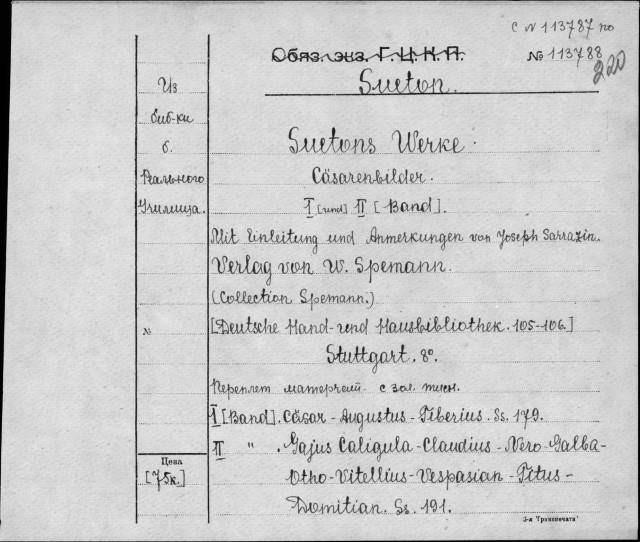 С № 113787 по
Обяз. экз. Г.Ц.К.П.
№ 113788
220
Sueton.
Из
биб-ки
б.
Реального
Училища.
Suetons Werke.
Cäsarenbilder.
I [und] II [Band].
Mit Einleitung und Anmerkungen von Joseph Sarrazin.
Verlag von W. Spemann.
(Collection Spemann.)
№
[Deutsche Hand- und Hausbibliothek. 105-106.]
Stuttgart. 8º.
Переплет матерчат. с зол. тисн.
I [Band]. Cäsar - Augustus - Tiberius. Ss. 179.
II " . Gajus Caligula - Claudius - Nero - Galba -
Otho - Vitellius - Vespasian - Titus -
Domitian. Ss. 191.
Цена
[75к.]
3-я "Транспечать"